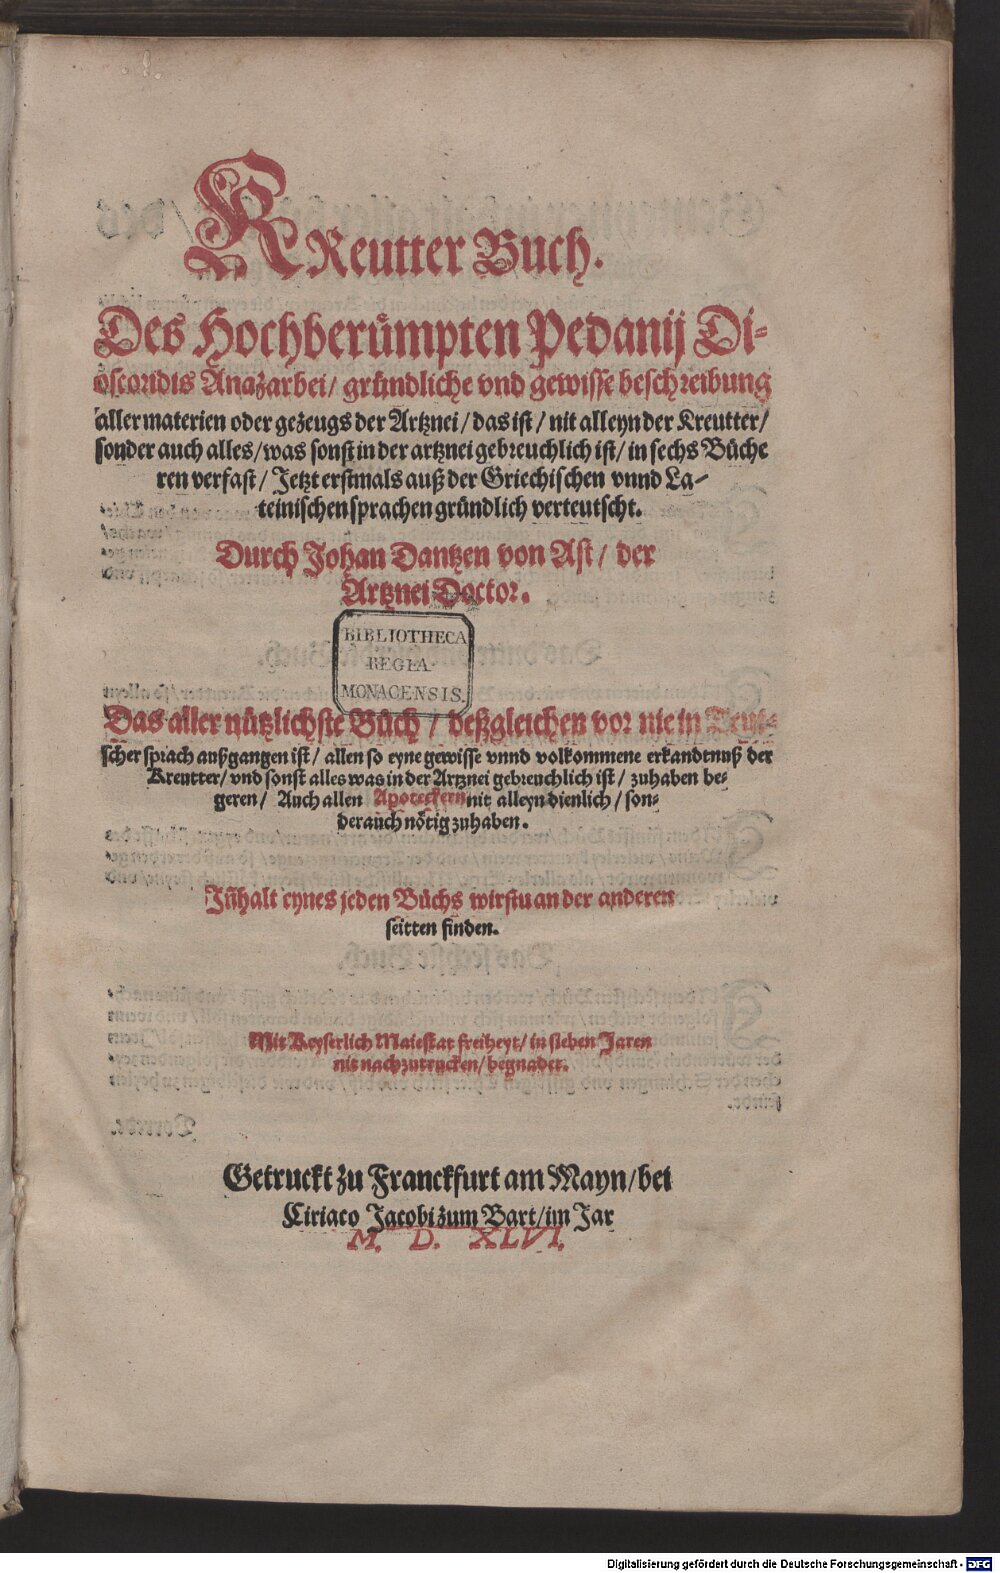 KReutter Buch.
Des Hochberůmpten Pedanij Di-
oscoridis Anazarbei/ gründliche vnd gewisse beschreibung
aller materien oder gezeugs der Artznei/ das ist/ nit alleyn der Kreutter/
sonder auch alles/ was sonst in der artznei gebreuchlich ist/ in sechs Büche
ren verfast/ Jetzt erstmals auß der Griechischen vnnd La-
teinischen sprachen gründlich verteutscht.
Durch Johan Dantzen von Ast/ der
Artznei Doctor.
BIBLIOTHECA
REGIA
MONACENSIS.
Das aller nützlichste Bůch/ deßgleichen vor nie in Teut-
scher sprach außgangen ist/ allen so eyne gewisse vnnd volkommene erkandtnuß der
Kreutter/ vnd sonst alles was in der Artznei gebreuchlich ist/ zuhaben be-
geren/ Auch allen Apoteckern nit alleyn dienlich/ son-
der auch nötig zuhaben.
Jnhalt eynes jeden Bůchs wirstu an der anderen
seitten finden.
Mit Keyserlich Maiestat freiheyt/ in sieben Jaren
nit nachzutrucken/ begnadet.
Getruckt zu Franckfurt am Mayn/ bei
Ciriaco Jacobi zum Bart/ im Jar
M. D. XLVI.
Digitalisierung gefördert durch die Deutsche Forschungsgemeinschaft - DFG